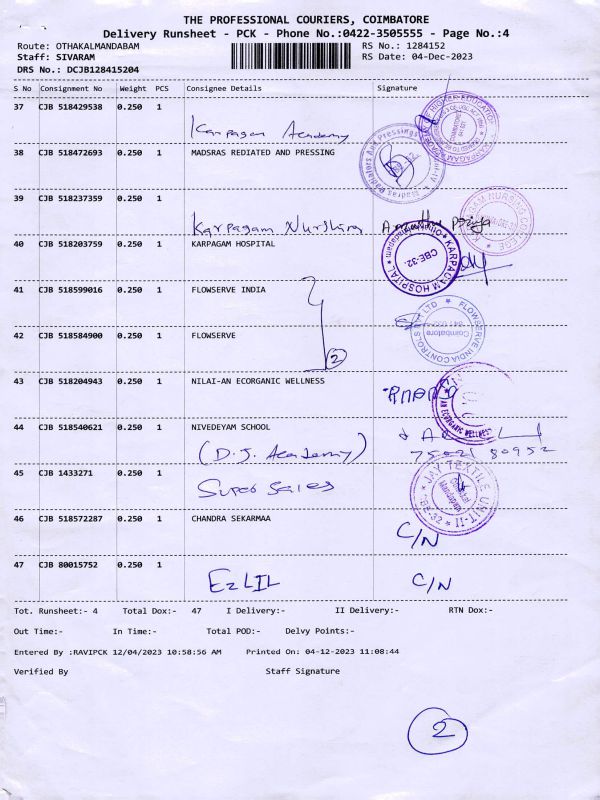 THE PROFESSIONAL COURIERS, COIMBATORE
Delivery Runsheet - PCK - Phone No.:0422-3505555 - Page No.:4
Route: OTHAKALMANDABAM RS No.: 1284152
Staff: SIVARAM RS Date: 04-Dec-2023
DRS No.: DCJB128415204
S No Consignment No Weight PCS Consignee Details Signature
37 CJB 518429538 0.250 1
Karpagam Academy
38 CJB 518472693 0.250 1 MADSRAS REDIATED AND PRESSING
39 CJB 518237359 0.250 1
Karpagam Nursing
40 CJB 518203759 0.250 1 KARPAGAM HOSPITAL
KARPAGAM HOSPITAL
CBE-32
41 CJB 518599016 0.250 1 FLOWSERVE INDIA
42 CJB 518584900 0.250 1 FLOWSERVE
2
FLOWSERVE INDIA CONTROLS
Coimbatore
43 CJB 518204943 0.250 1 NILAI-AN ECORGANIC WELLNESS
AN ECORGANIC WELLNESS
44 CJB 518540621 0.250 1 NIVEDEYAM SCHOOL
(D.J. Academy) 75021 80952
45 CJB 1433271 0.250 1
Super Sales
JAY TEXTILE UNIT-II
46 CJB 518572287 0.250 1 CHANDRA SEKARMAA
C/N
47 CJB 80015752 0.250 1
EZLIL C/N
Tot. Runsheet:- 4 Total Dox:- 47 I Delivery:- II Delivery:- RTN Dox:-
Out Time:- In Time:- Total POD:- Delvy Points:-
Entered By :RAVIPCK 12/04/2023 10:58:56 AM Printed On: 04-12-2023 11:08:44
Verified By Staff Signature
2